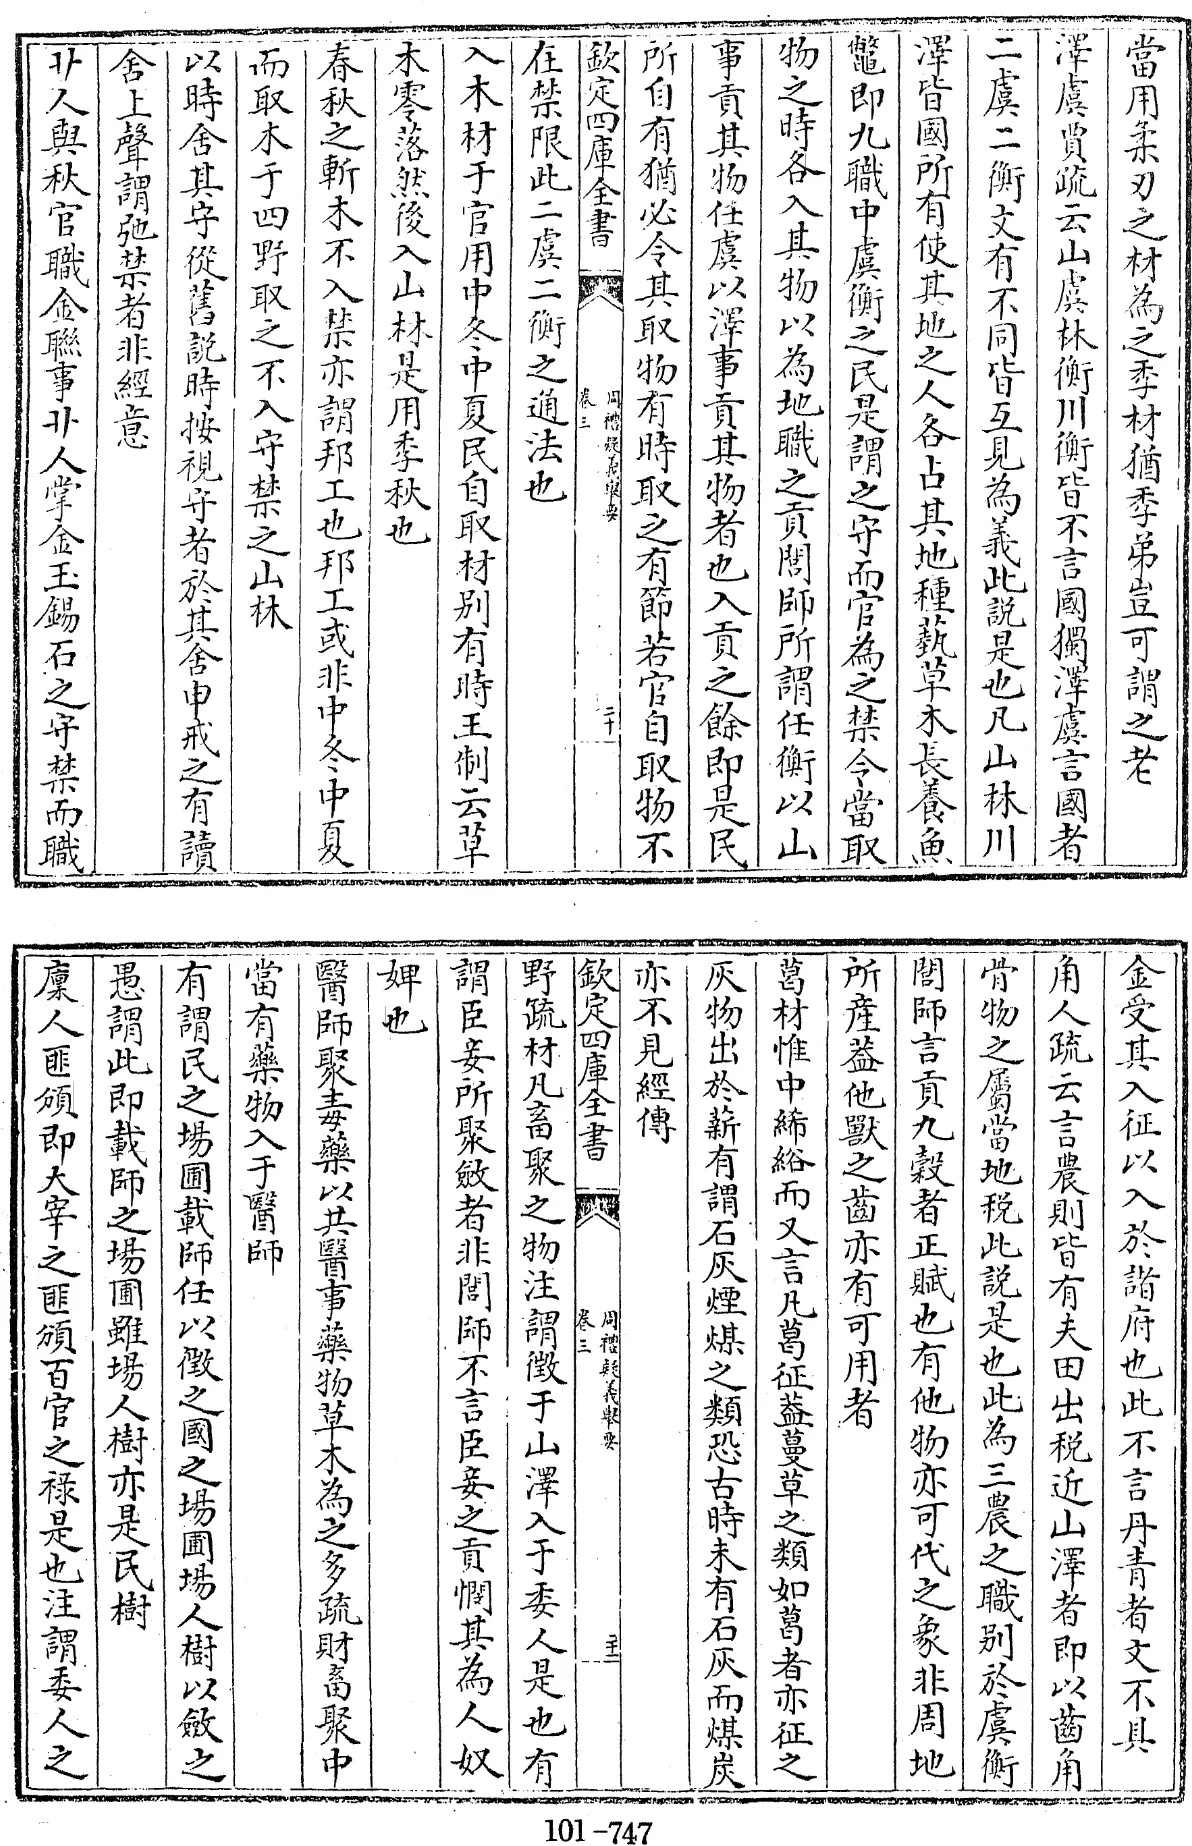 當用柔刃之材為之季材猶季弟豈可謂之老
澤虞賈疏云山虞林衡川衡皆不言國獨澤虞言國者
二虞二衡文有不同皆互見為義此説是也凡山林川
澤皆國所有使其地之人各占其地種蓺草木長養魚
鼈即九職中虞衡之民是謂之守而官為之禁令當取
物之時各入其物以為地職之貢閭師所謂任衡以山
事貢其物任虞以澤事貢其物者也入貢之餘即是民
所自有猶必令其取物有時取之有節若官自取物不
欽定四庫全書
周禮疑義舉要
卷三
二十
在禁限此二虞二衡之通法也
入木材于官用中冬中夏民自取材别有時王制云草
木零落然後入山林是用季秋也
春秋之斬木不入禁亦謂邦工也邦工或非中冬中夏
而取木于四野取之不入守禁之山林
以時舍其守從舊説時按視守者於其舍申戒之有讀
舍上聲謂弛禁者非經意
丱人與秋官職金聯事丱人掌金玉錫石之守禁而職
金受其入征以入於諸府也此不言丹青者文不具
角人疏云言農則皆有夫田出税近山澤者即以齒角
骨物之屬當地税此説是也此為三農之職别於虞衡
閭師言貢九穀者正賦也有他物亦可代之象非周地
所產葢他獸之齒亦有可用者
葛材惟中絺綌而又言凡葛征葢蔓草之類如葛者亦征之
灰物出於薪有謂石灰煙煤之類恐古時未有石灰而煤炭
亦不見經傳
欽定四庫全書
周禮疑義舉要
卷三
二十一
野疏材凡畜聚之物注謂徵于山澤入于委人是也有
謂臣妾所聚斂者非閭師不言臣妾之貢憫其為人奴
婢也
醫師聚毒藥以共醫事藥物草木為之多疏財畜聚中
當有藥物入于醫師
有謂民之場圃載師任以徵之國之場圃場人樹以斂之
愚謂此即載師之場圃雖場人樹亦是民樹
廩人匪頒即大宰之匪頒百官之祿是也注謂委人之
101-747